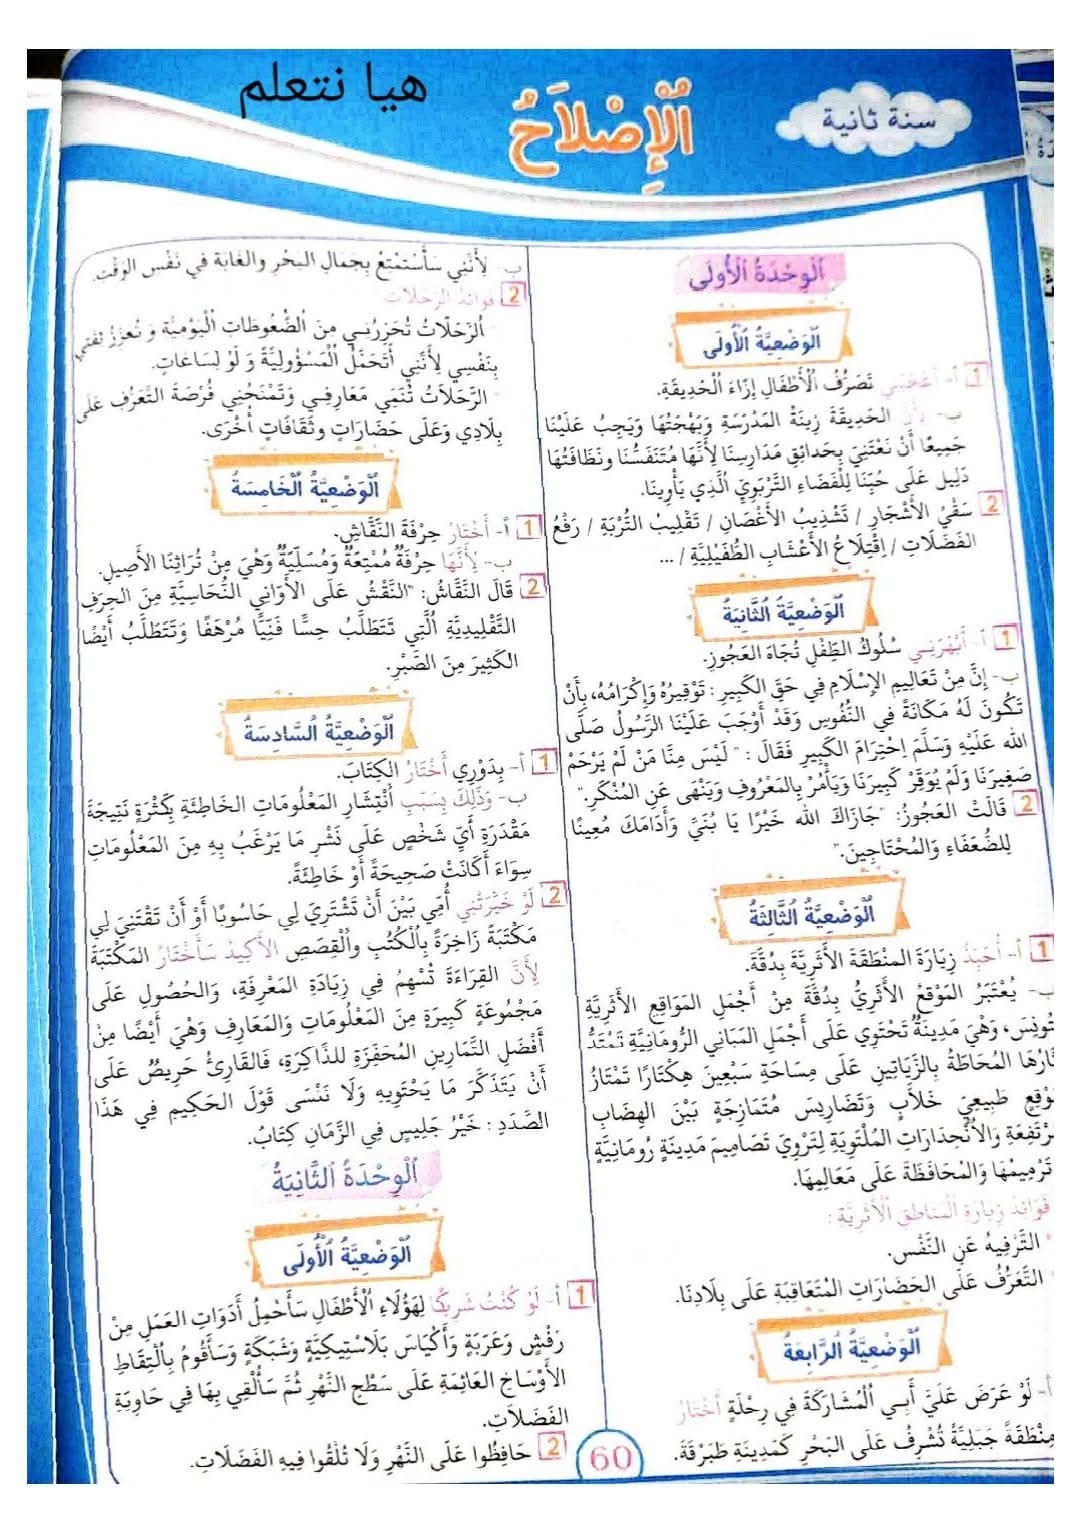 هيا نتعلم
سنة ثانية
اَلْإِصْلَاحُ
اَلْوِحْدَةُ الْأُولَى
اَلْوَضْعِيَّةُ الْأُولَى
1 أ- أَعْجَبَنِي تَصَرُّفُ الْأَطْفَالِ إِزَاءَ الْحَدِيقَةِ.
ب- لِأَنَّ الحَدِيقَةَ زِينَةُ المَدْرَسَةِ وَبَهْجَتُهَا وَيَجِبُ عَلَيْنَا
جَمِيعًا أَنْ نَعْتَنِيَ بِحَدائِقِ مَدَارِسِنَا لِأَنَّهَا مُتَنَفَّسُنَا ونَظَافَتُهَا
دَلِيل عَلَى حُبِّنَا لِلْفَضَاءِ التَّرْبَوِيِّ الَّذِي يَأْوِينَا.
2 سَقْيُ الأَشْجَارِ / تَشْذِيبُ الأَغْصَانِ / تَقْلِيبُ التُّرْبَةِ / رَفْعُ
الفَضَلَاتِ / اِقْتِلَاعُ الأَعْشَابِ الطُّفَيْلِيَّةِ / ...
اَلْوَضْعِيَّةُ الثَّانِيَةُ
1 أ- أَبْهَرَنِي سُلُوكُ الطِّفْلِ تُجَاهَ العَجُوزِ.
ب- إِنَّ مِنْ تَعَالِيمِ الإِسْلَامِ فِي حَقِّ الكَبِيرِ : تَوْقِيرُهُ وَإِكْرَامُهُ، بِأَنْ
تَكُونَ لَهُ مَكَانَةً في النُّفُوسِ وَقَدْ أَوْجَبَ عَلَيْنَا الرَّسُولُ صَلَّى
الله عَلَيْهِ وَسَلَّمَ اِحْتِرَامَ الكَبِيرِ فَقَالَ : " لَيْسَ مِنَّا مَنْ لَمْ يَرْحَمْ
صَغِيرَنَا وَلَمْ يُوَقِّرْ كَبِيرَنَا وَيَأْمُرْ بِالمَعْرُوفِ وَيَنْهَى عَنِ المُنْكَرِ."
2 قَالَتْ العَجُوزُ: "جَازَاكَ الله خَيْرًا يَا بُنَيَّ وَأَدَامَكَ مُعِينًا
لِلضُّعَفَاءِ وَالمُحْتَاجِينَ."
اَلْوَضْعِيَّةُ الثَّالِثَةُ
1 أ- أُحَبِّذُ زِيَارَةَ المنْطَقَةَ الأَثَرِيَّةَ بِدُقَّةَ.
ب- يُعْتَبَرُ المَوْقِعُ الأَثَرِيُّ بِدُقَّةَ مِنْ أَجْمَلِ المَوَاقِعِ الأَثَرِيَّةِ
تُونِسَ، وَهْيَ مَدِينَةٌ تَحْتَوِي عَلَى أَجْمَلِ المَبَانِي الرُّومَانِيَّةِ تَمْتَدُّ
المُحَاطَةُ بِالزَّيَاتِينِ عَلَى مِسَاحَةِ سَبْعِينَ هِكْتَارًا تَمْتَازُ
طَبِيعِيٍّ خَلاَّبٍ وَتَضَارِيسَ مُتَمَازِجَةٍ بَيْنَ الهِضَابِ
وَالاُنْحِدَارَاتِ المُلْتَوِيَةِ لِتَرْوِيَ تَصَامِيمَ مَدِينَةٍ رُومَانِيَّةٍ
تَرْمِيمُهَا وَالمُحَافَظَةَ عَلَى مَعَالِمِهَا.
فَوَائِدُ زِيَارَةِ الْمَنَاطِقِ الْأَثَرِيَّةِ :
التَّرْفِيهُ عَنِ النَّفْس.
التَّعَرُّفُ عَلَى الحَضَارَاتِ المُتَعَاقِبَةِ عَلَى بِلَادِنَا.
اَلْوَضْعِيَّةُ الرَّابِعَةُ
أ- لَوْ عَرَضَ عَلَيَّ أَبِي الْمُشَارَكَةَ فِي رِحْلَةٍ أَخْتَارُ
مِنْطَقَةً جَبَلِيَّةً تُشْرِفُ عَلَى البَحْرِ كَمَدِينَةِ طَبَرْقَةَ.
ب- لِأَنَّنِي سَأَسْتَمْتِعُ بِجَمَالِ البَحْرِ والغَابَة في نَفْسِ الوَقْتِ.
2 فوائد الرحلات
الرَّحَلَاتُ تُحَرِّرُنِي مِنَ الضُّغُوطَاتِ الْيَوْمِيَّة وَ تُعَزِّزُ ثِقَتِي
بِنَفْسِي لِأَنَّنِي أَتَحَمَّلُ الْمَسْؤُولِيَّةَ وَ لَوْ لِسَاعَاتٍ.
الرَّحَلَاتُ تُنَمِّي مَعَارِفِي وَتَمْنَحُنِي فُرْصَةَ التَّعَرُّفِ عَلَى
بِلَادِي وَعَلَى حَضَارَاتٍ وثَقَافَاتٍ أُخْرَى.
اَلْوَضْعِيَّةُ الْخَامِسَةُ
1 أ- أَخْتَارُ حِرْفَةَ النَّقَّاشِ.
ب- لِأَنَّهَا حِرْفَةٌ مُمْتِعَةٌ وَمُسَلِّيَةٌ وَهْيَ مِنْ تُرَاثِنَا الأَصِيلِ.
2 قَالَ النَّقَّاشُ: "النَّقْشُ عَلَى الأَوَانِي النُّحَاسِيَّةِ مِنَ الحِرَفِ
التَّقْلِيدِيَّةِ الَّتِي تَتَطَلَّبُ حِسًّا فَنِّيًّا مُرْهَفًا وَتَتَطَلَّبُ أَيْضًا
الكَثِيرَ مِنَ الصَّبْرِ.
اَلْوَضْعِيَّةُ السَّادِسَةُ
1 أ- بِدَوْرِي أَخْتَارُ الكِتَابَ.
ب- وَذَلِكَ بِسَبَبِ اُنْتِشَارِ المَعْلُومَاتِ الخَاطِئَةِ بِكَثْرَةٍ نَتِيجَةَ
مَقْدَرَةِ أَيِّ شَخْصٍ عَلَى نَشْرِ مَا يَرْغَبُ بِهِ مِنَ المَعْلُومَاتِ
سِوَاءَ أَكَانَتْ صَحِيحَةً أَوْ خَاطِئَةً.
2 لَوْ خَيَّرَتْنِي أُمِّي بَيْنَ أَنْ تَشْتَرِيَ لِي حَاسُوبًا أَوْ أَنْ تَقْتَنِيَ لِي
مَكْتَبَةً زَاخِرَةً بِالْكُتُبِ وَالْقِصَصِ الأَكِيدُ سَأَخْتَارُ المَكْتَبَةَ
لِأَنَّ القِرَاءَةَ تُسْهِمُ فِي زِيَادَةِ المَعْرِفَةِ، وَالحُصُولِ عَلَى
مَجْمُوعَةٍ كَبِيرَةٍ مِنَ المَعْلُومَاتِ وَالمَعَارِفِ وَهْيَ أَيْضًا مِنْ
أَفْضَلِ التَّمَارِينِ المُحَفِّزَةِ للذَّاكِرَةِ، فَالقَارِئُ حَرِيصٌ عَلَى
أَنْ يَتَذَكَّرَ مَا يَحْتَوِيهِ وَلَا نَنْسَى قَوْلَ الحَكِيمِ فِي هَذَا
الصَّدَدِ : خَيْرُ جَلِيسٍ فِي الزَّمَانِ كِتَابُ.
اَلْوِحْدَةُ الثَّانِيَةُ
اَلْوَضْعِيَّةُ الْأُولَى
1 أ- لَوْ كُنْتُ شَرِيكًا لِهَؤُلَاءِ الْأَطْفَالِ سَأَحْمِلُ أَدَوَاتِ العَمَلِ مِنْ
رَفْشٍ وَعَرَبَةٍ وَأَكْيَاسٍ بَلَاسْتِيكِيَّةٍ وَشَبَكَةٍ وَسَأَقُومُ بِالْتِقَاطِ
الأَوْسَاخِ العَائِمَةِ عَلَى سَطْحِ النَّهْرِ ثُمَّ سَأُلْقِي بِهَا فِي حَاوِيَةِ
الفَضَلَاتِ.
2 حَافِظُوا عَلَى النَّهْرِ وَلَا تُلْقُوا فِيهِ الفَضَلَاتِ.
60